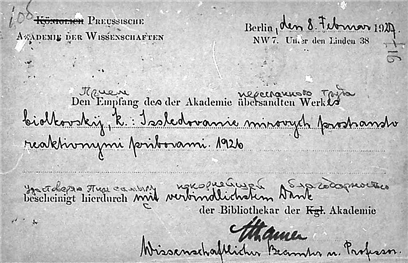 108
Königlich Preussische
Akademie der Wissenschaften
Berlin, den 8. Februar 1927
NW 7. Unter den Linden 38
Прием пересланного труда
Den Empfang des der Akademie übersandten Werkes
Ciolkovskij, K.: Izsledovanie mirovych prostranstv
reaktivnymi priborami. 1926
покорнейшей благодарностью
bescheinigt hierdurch mit verbindlichstem Dank
der Bibliothekar der Kgl. Akademie
Wissenschaftlicher Beamter u. Professor.